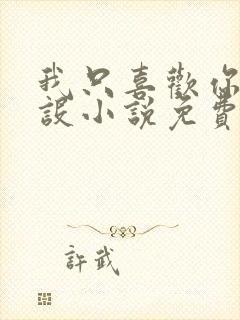 我只喜歡你
設小說免費
許武